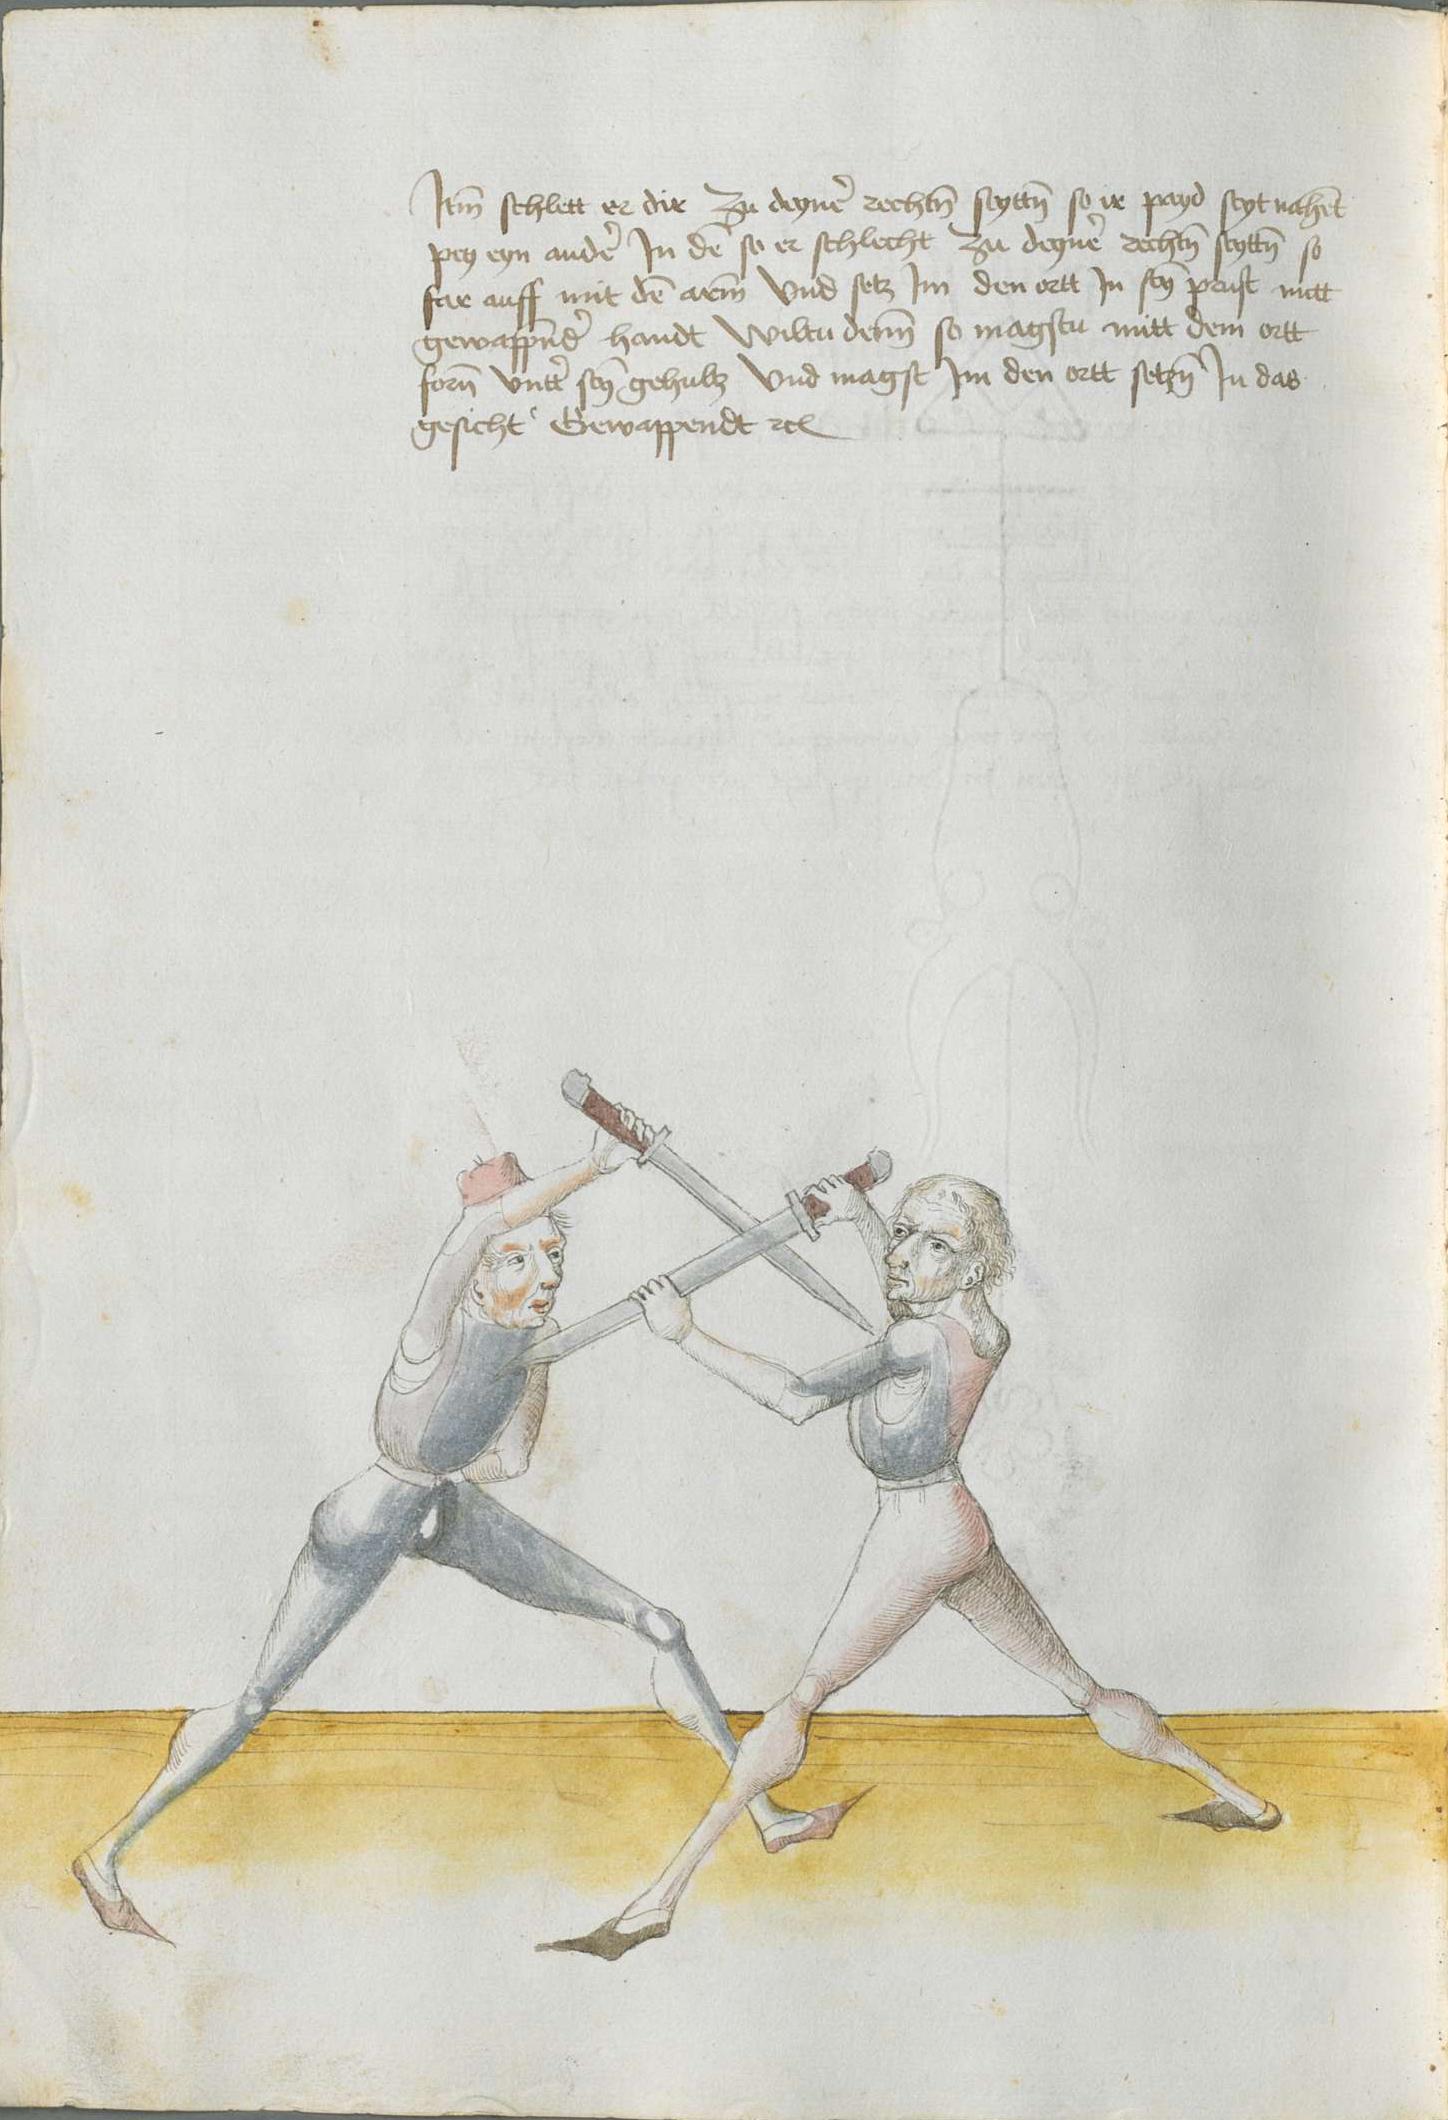 Itm̄ schlett er dir zu deyne᷑ rechtn̄ seyttn̄ so ir payd seyt nahēt
pey eyn ande᷑ In dē so er schlecht zu deyne᷑ rechtn̄ seyttn̄ so
far auff mit dē arm̄ Vnd setz Im den ortt In sey̅ prust mitt
gewappn̄de᷑ handt Wiltu den̄n so magstu mitt dem ortt
forn̄ vntt᷑ sey̅ gehultz Vnd magst Im den ortt setzn̄ In das
gesicht Gewappendt rc